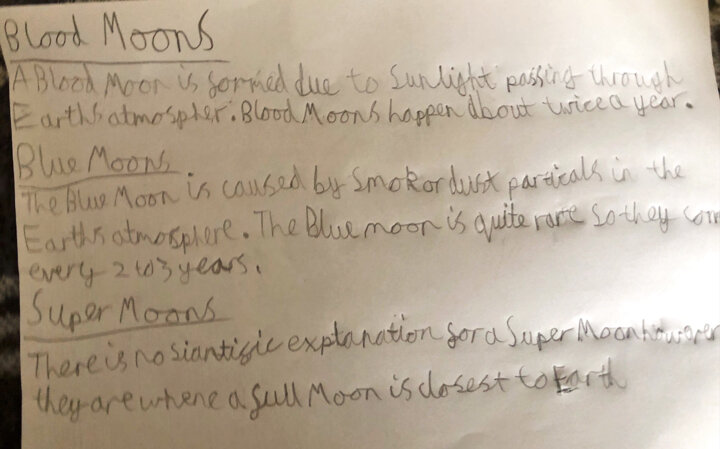 Blood Moons
A Blood Moon is formed due to Sunlight passing through
Earths atmospher. Blood Moons happen about twice a year.
Blue Moons
The Blue Moon is caused by Smok or dust particals in the
Earths atmosphere. The Blue moon is quite rare so they com
every 2 to 3 years.
Super Moons
There is no siantific explanation for a Super Moon however
they are where a full Moon is closest to Earth